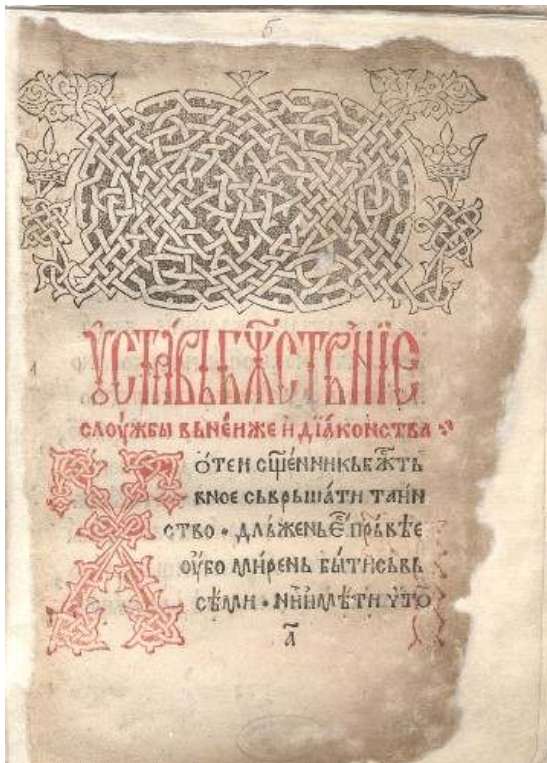 Б
ꙋставь бж҃ствніе
слоужбы вьнеиже и дїаконства
Хотеи сщ҃енникь бж҃ть
вное сьврьшати таин
ство · дльжень є҆ прьвѣе
оубо мирень быти сьвь
сѣми · ниимѣти ꙋто
а҃